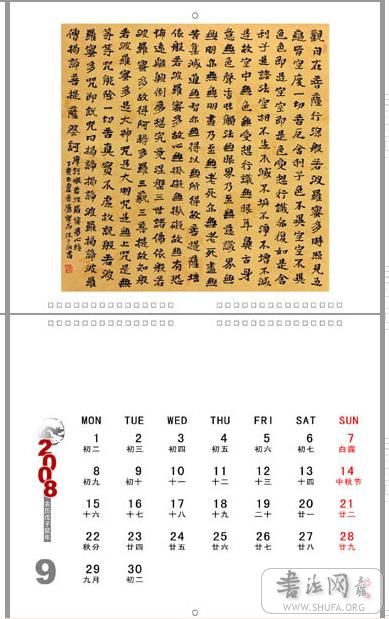 觀自在菩薩行深般若波羅蜜多時照見五
蘊皆空度一切苦厄舍利子色不異空空不異
色色即是空空即是色受想行識亦復如是舍
利子是諸法空相不生不滅不垢不淨不增不減
是故空中無色無受想行識無眼耳鼻舌身
意無色聲香味觸法無眼界乃至無意識界無
無明亦無無明盡乃至無老死亦無老死盡無
苦集滅道無智亦無得以無所得故菩提薩埵
依般若波羅蜜多故心無掛礙無掛礙故無有恐
怖遠離顛倒夢想究竟涅槃三世諸佛依般若
波羅蜜多故得阿耨多羅三藐三菩提故知般
若波羅蜜多是大神咒是大明咒是無上咒是無
等等咒能除一切苦真實不虛故說般若波
羅蜜多咒即說咒曰揭諦揭諦波羅揭諦波羅
僧揭諦菩提薩婆訶 摩訶般若波羅蜜多心經
2008
农历戊子鼠年
9
MON TUE WED THU FRI SAT SUN
1 2 3 4 5 6 7
初二 初三 初四 初五 初六 初七 白露
8 9 10 11 12 13 14
初九 初十 十一 十二 十三 十四 中秋节
15 16 17 18 19 20 21
十六 十七 十八 十九 二十 廿一 廿二
22 23 24 25 26 27 28
秋分 廿四 廿五 廿六 廿七 廿八 廿九
29 30
九月 初二
书法网
WWW.SHUFA.ORG